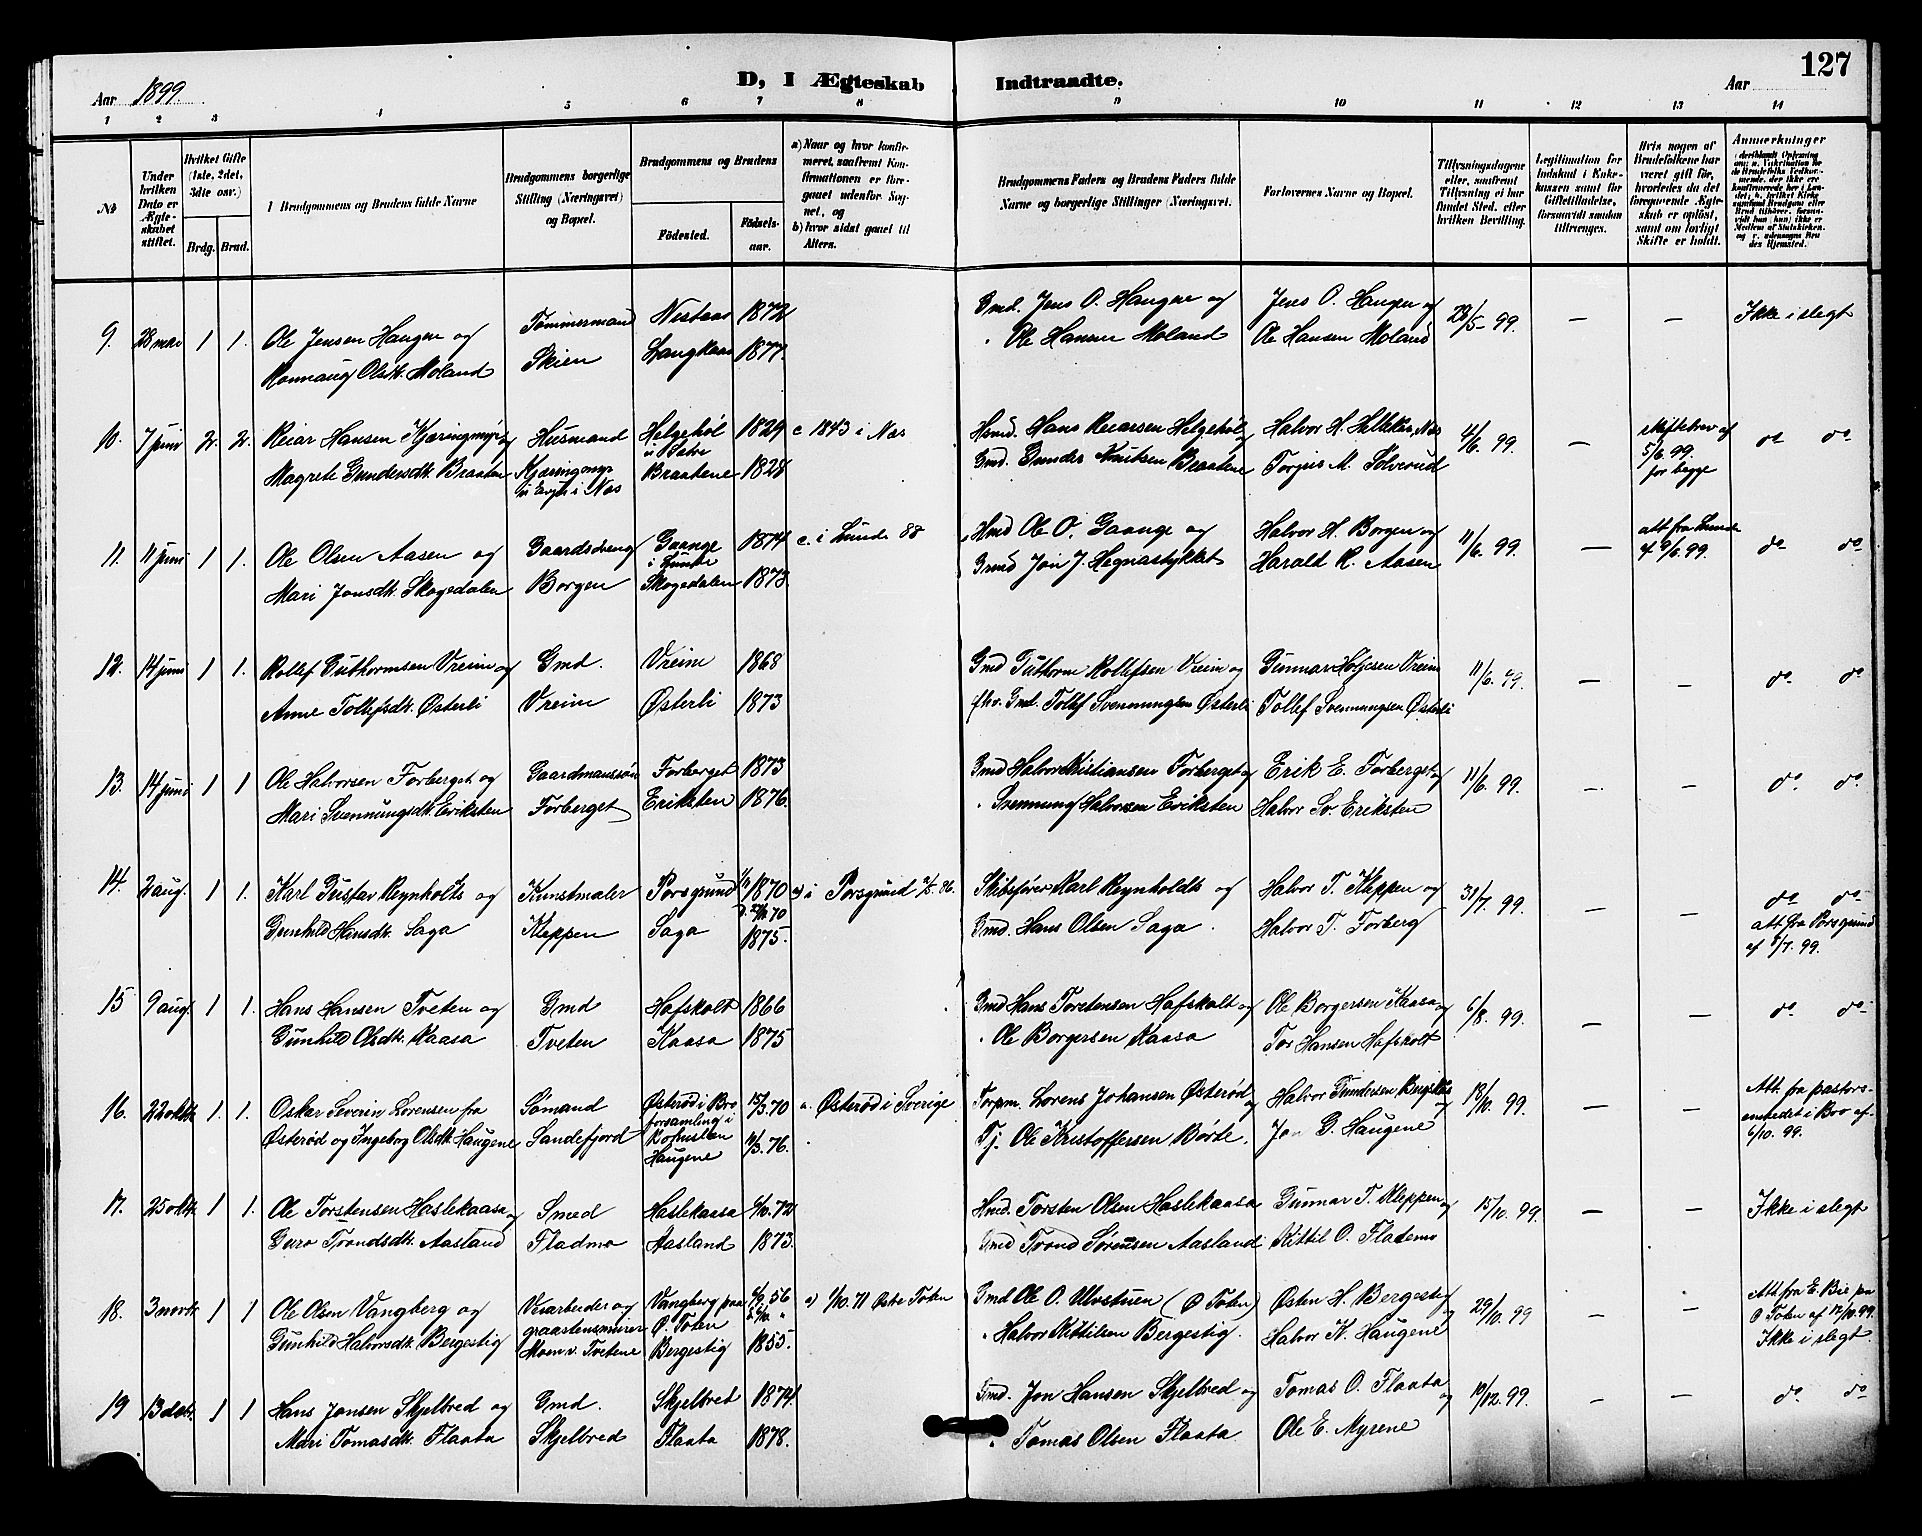 127
D, I Ægteskab Indtraadte.
Aar 1899. Aar
1 2 3 4 5 6 7 8 9 10 11 12 13 14
№
Under hvilken Dato er Ægteskabet stiftet.
Hvilket Gifte (1ste, 2det, 3die osv.)
Brdg. Brud.
Brudgommens og Brudens fulde Navne
Brudgommens borgerlige Stilling (Næringsvei) og Bopæl.
Brudgommens og Brudens
Fødested.
Fødselsaar.
a) Naar og hvor konfirmeret, saafremt Konfirmationen er foregaaet udenfor Sognet, og
b) hvor sidst gaaet til Alters.
Brudgommens Faders og Brudens Faders fulde Navne og borgerlige Stillinger (Næringsvei).
Forlovernes Navne og Bopæl.
Tillysningsdagene eller, saafremt Tillysning ei har fundet Sted, efter hvilken Bevilling.
Legitimation for Indskud i Enkekassen samt for Giftetilladelse, forsaavidt saadan tiltrænges.
Hvis nogen af Brudefolkene har været gift før, hvorledes da det foregaaende Ægteskab er opløst, samt om lovligt Skifte er holdt.
Anmerkninger
9. 28 mai 1 1. Ole Jensen Haugen og Tømmermand Nestaas 1872 Gmd. Jens O. Haugen og Jens O. Haugen og 28/5 99. — — Ikke i slegt
Ronnaug Olsdt. Moland Skien Langkaas 1877. " Ole Hansen Moland Ole Hansen Moland
10. 7 juni 2. 2. Reiar Hansen Kjæringmyr og Husmand Helgehøl 1829 c 1843 i Næs Hsmd. Hans Reiarsen Helgehøl og Halvor H. Hellekas, Næs 4/6. 99. — skiftebrev af do do
Magrete Gundersdt. Braaten Kjæringmyr Braatene 1828 Gmd. Gunder Knutsen Braatene Torgus M. Sølverud 5/6. 99.
i Næs for begge
11. 11 juni 1 1. Ole Olsen Aasen og Gaardsdreng Gaange 1874 c. i Lunde 88 Hsmd Ole O. Gaange og Halvor H. Borgen og 11/6. 99. — att. fra Lunde do do
Mari Jonsdt. Skogedalen Borgen i Lunde Skogedalen 1873. Gmd Jon J. Hegnastykket Harald R. Aasen af 9/6. 99.
12. 14 juni 1 1. Rollef Guthormsen Vreim og Gmd. Vreim 1868 Gmd Guthorm Rollefsen Vreim og Gunnar Holjesen Vreim 11/6. 99. — — do do
Anne Tollefsdt. Østerli Vreim Østerli 1873 fhv. Gmd. Tollef Svennungsen Østerli Tollef Svennungsen Østerli
13. 14 juni 1 1 Ole Halvorsen Forberget og Gaardmanssøn Forberget 1873 Gmd Halvor Kristiansen Forberget og Erik E. Forberget og 11/6. 99. — — do do
Mari Svennungsdt. Eriksten Forberget Eriksten 1876. " Svennung Halvorsen Eriksten Halvor Sv. Eriksten
14. 2 aug. 1 1. Karl Gustav Reynholts og Kunstmaler Porsgrund 1870 a) i Porsgrund 2/5. 86. Skibsfører Karl Reynholdts og Halvor T. Kleppen og 31/7. 99. — — do do
Gunhild Hansdt. Saga Kleppen Saga 1875. Gmd. Hans Olsen Saga. Halvor T. Forberg att. fra Porsgrund
af 8/7. 99.
15 9 aug. 1 1. Hans Hansen Tveten og Gmd Hafskolt 1866 Gmd Hans Torstensen Hafskolt og Ole Borgersen Kaasa og 6/8. 99. — — do do
Gunhild Olsdt. Kaasa Tveten Kaasa 1875 " Ole Borgersen Kaasa Tor Hansen Hafskolt
16. 22 oktr. 1. 1. Oskar Severin Lorensen fra Sømand Østerød i Bro 15/3. 70 a. Østerød i Sverige Torpm. Lorens Johansen Østerød og Halvor Gundersen og 18/10. 99. — — Att. fra pastorsembedet i Bro af
Østerød og Ingeborg Olsdt. Haugene Sandefjord forsamling i Bohuslen Haugene 10/3. 76. Tj. Ole Kristoffersen Børte. Jon G. Haugene 6/10. 99.
17. 25 oktr. 1 1. Ole Torstensen Haslekaasa og Smed Haslekaasa 6/10. 72 Hmd. Torsten Olsen Haslekaasa Gunnar T. Kleppen og 15/10. 99. — — Ikke i slegt
Guro Trondsdt. Aasland Fladmo Aasland 1873. Gmd Trond Sørensen Aasland Kittil O. Flatemo
18. 3 novbr. 1 1 Ole Olsen Vangberg og Veiarbeider og Vangberg paa 6/9. 56 a) 1/10. 71 Østre Toten Gmd Ole O. Ulvstuen (Ø Toten) Østen H. Bergestig og 29/10. 99 — — Att. fra E. Brie pa
Gunhild Halvorsdt. Bergestig graastensmurer Ø. Toten 1855. " Halvor Kittilsen Bergestig. Halvor K. Haugene Ø Toten af 12/10. 99.
Moen v. Tvetene Bergestig Ikke i slegt
19 13 decbr. 1 1 Hans Jonsen Skjelbred og Gmd. Skjelbred 1874. Gmd. Jon Hansen Skjelbred og Tomas O. Flaata og 10/12. 99. — — do do
Mari Tomasdt. Flaata Skjelbred Flaata 1878. " Tomas Olsen Flaata Ole E. Myrene